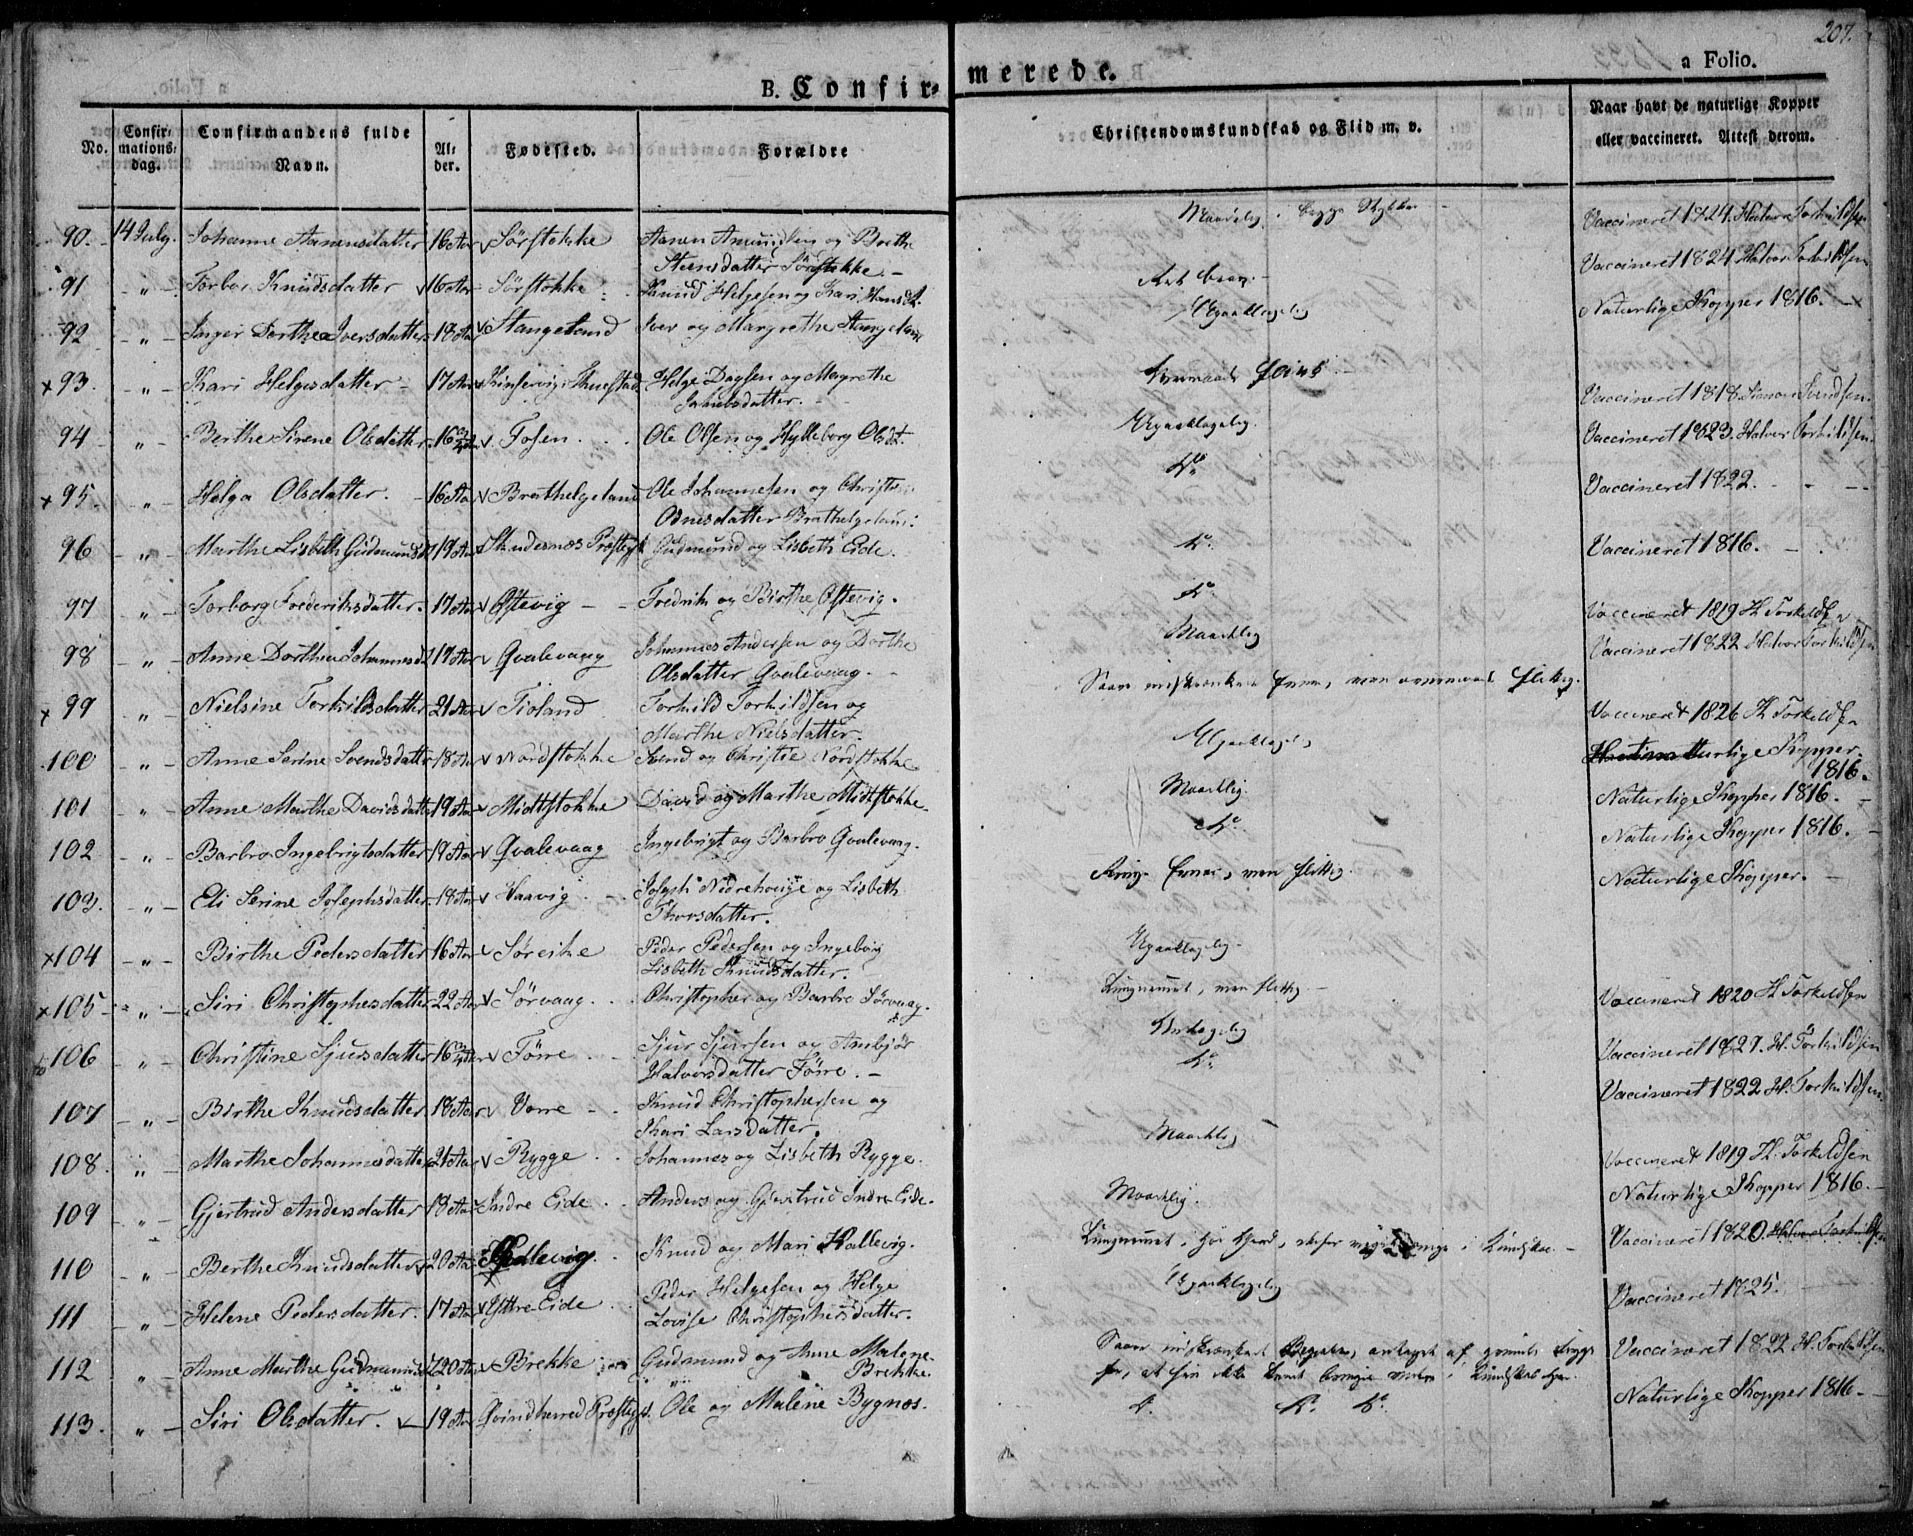 207.
B. Confirmerede.
a Folio.
No. Confirmationsdag. Confirmandens fulde Navn. Alder. Fødested. Forældre Christendomskundskab og Flid m. v. Naar havt de naturlige Kopper eller vaccineret. Attest derom.
90. 14 July. Johanne Aanensdatter 16 Aar Sørstokke Aanen Amundsen og Berthe
Steensdatter Sørstokke - Vaccineret 1824. Halvor Torkildsen
91 " Torbor Knudsdatter 16 Aar Sørstokke Knud Helgesen og Kari Hansd. Vaccineret 1824 Halvor Torkildsen
92 " Inger Dorthea Iversdatter 18 Aar Stangeland Iver og Margrethe Stangeland Upaaklagelig Naturlige Kopper 1816.
x 93. " Kari Helgesdatter 17 Aar Helge Dagsen og Magrethe
Jakobsdatter. Vaccineret 1818. Simon Svendsen
94 " Berthe Sirene Olsdatter 16 Fosen Ole Olsen og Hylleborg Olsdt. Upaaklagelig. Vaccineret 1823. Halvor Torkildsen
x 95. " Helga Olsdatter. 16 Aar Brathelgeland Ole Johannesen og Christi
Odnesdatter Brathelgeland Do Vaccineret 1822.
96 " Marthe Lisbeth Gudmunds 19 Aar Skudesnes Præstegj Gudmund og Lisbeth Eide. Do Vaccineret 1816.
97 " Torborg Frederiksdatter. 17 Aar Ostevig Fredrik og Birthe Ostevig. Do Vaccineret 1819 H Torkeldsen
98 " Anne Dorthea Johannesd 17 Aar Qvalevaag Johannes Andersen og Dorthe
Olsdatter Qvalevaag. Maadelig Vaccineret 1822 Halvor Torkildsen
x 99 " Nielsine Torkildsdatter 21 Aar Fioland Torkild Torkildsen og
Marthe Nielsdatter. Saare indskrænket Evne, men flittig. Vaccineret 1826 H Torkeldsen
100 " Anne Serine Svendsdatter 18 Aar Nordstokke Svend og Christie Nordstokke Upaaklagel. Naturlige Kopper
1816.
101 " Anne Marthe Davidsdatter 19 Aar Midtstokke David og Marthe Midtstokke. Maadelig. Naturlige Kopper 1816.
102 " Barbro Ingebrigtsdatter 19 Aar Qvalevaag Ingebrigt og Barbro Qvalevaag. Do Naturlige Kopper 1816.
103. " Eli Serine Josephsdatter 18 Aar Haavig Joseph Nedrehouge og Lisbeth
Thorsdatter. Ringe Evner, men flittig. Naturlige Kopper.
x 104 " Birthe Pedersdatter 16 Aar Søreike Peder Pedersen og Ingeborg
Lisbeth Knudsdatter. Upaaklagelig.
x 105 " Siri Christophersdatter 22 Aar Sørvaag. Christopher og Barbro Sørvaag. Tungnemmet, men flittig. Vaccineret 1820 H Torkeldsen
106 " Christine Sjursdatter 16 Førre Sjur Sjursen og Anbjør
Halvorsdatter Førre. - Vaccineret 1827. H. Torkildsen
107 " Birthe Knudsdatter 18 Aar Vorre Knud Christophersen og
Kari Larsdatter. Do Vaccineret 1822 H. Torkildsen
108. " Marthe Johannesdatter 21 Aar Rygge Johannes og Lisbeth Rygge. Maadelig Vaccineret 1819 H. Torkeldsen
109 " Gjertrud Andersdatter 18 Aar Indre Eide Anders og Gjertrud Indre Eide. Maadelig. Naturlige Kopper 1816.
110 " Berthe Knudsdatter 20 Aar Hallevig. Knud og Mari Hallevig. Tungnemmet, Vaccineret 1820. Halvor Torkildsen
111 " Helene Pedersdatter. 17 Aar Yttre Eide Peder Helgesen og Helge
Lovise Christophersdatter. Upaaklagelig Vaccineret 1825.
112 " Anne Marthe Gudmundsd 20 Aar Brekke Gudmund og Anne Malene
Brekke Saare indskrænket Begreb, antaget af Vaccineret 1822 H. Torkeldsen
113. " Siri Olsdatter. 19 Aar Qvindherred Præstegd. Ole og Malene Bygnes. Do Do Do Naturlige Kopper 1816.